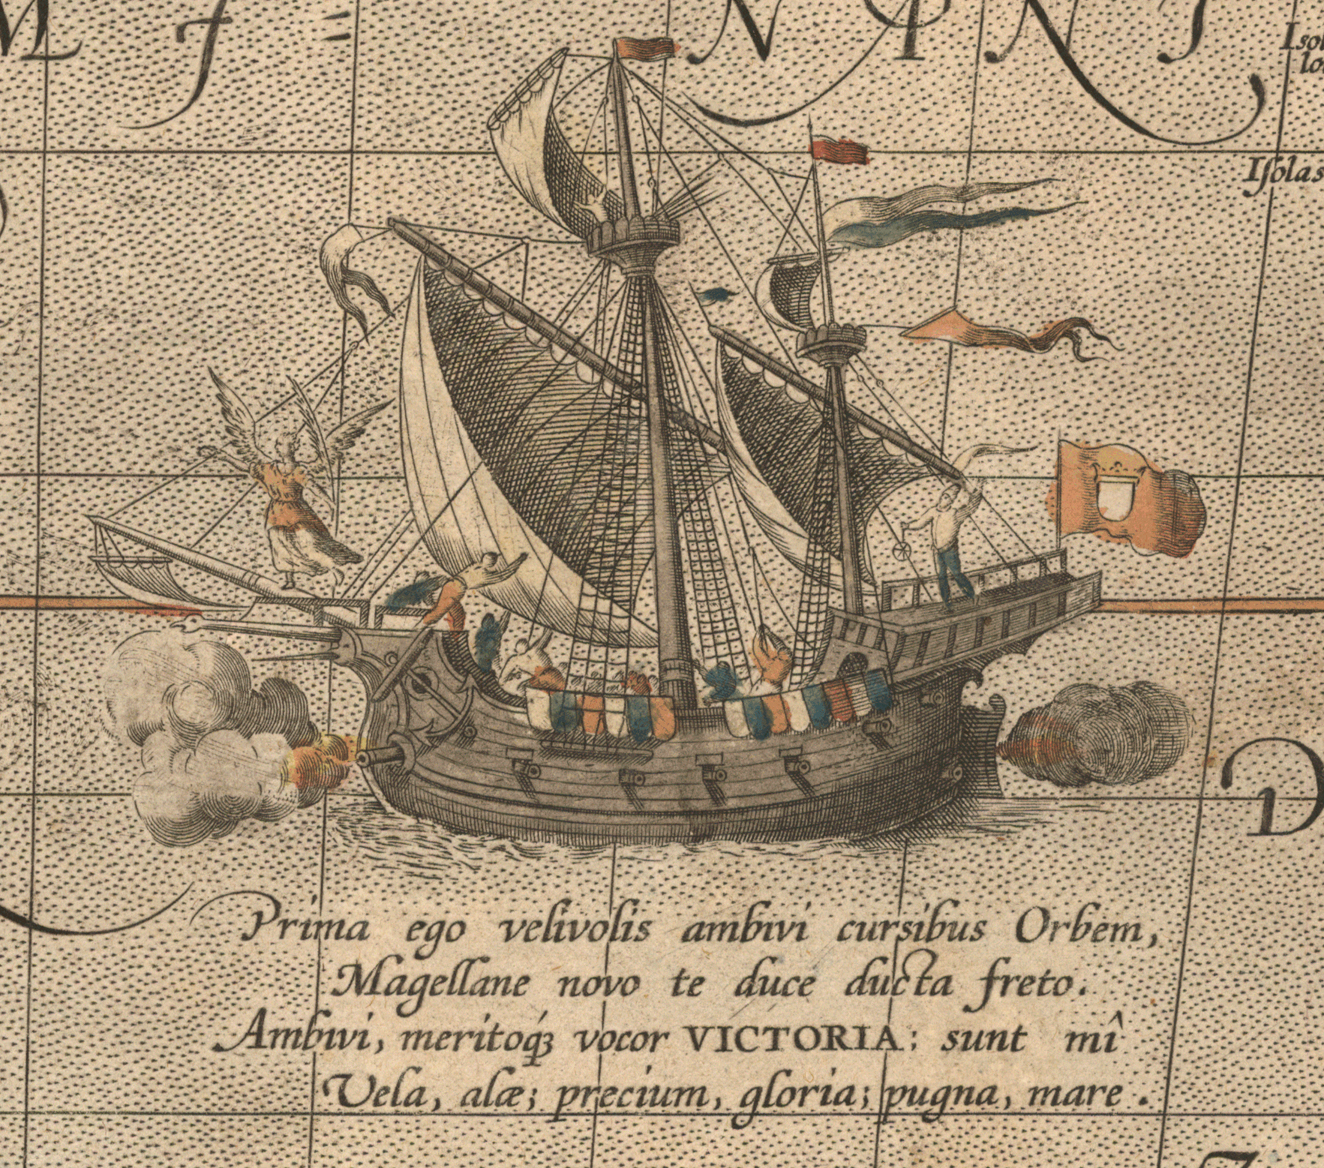 Isolas
Prima ego velivolis ambivi cursibus Orbem,
Magellane novo te duce ducta freto.
Ambivi, meritoq́ꝫ vocor VICTORIA: sunt mî
Vela, alæ; precium, gloria; pugna, mare.